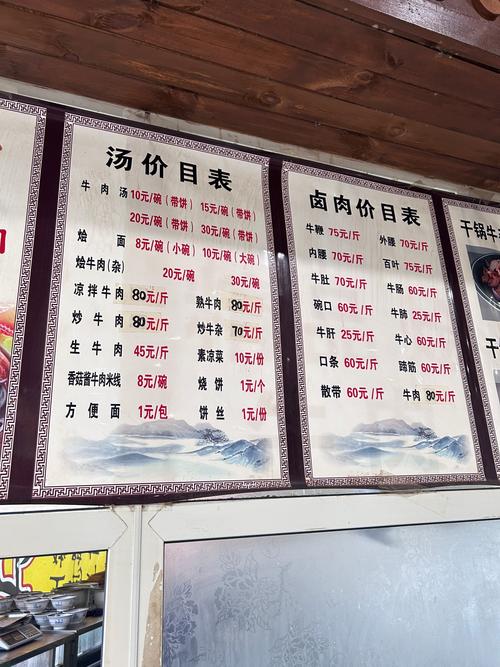 汤价目表
牛肉汤 10元/碗（带饼） 15元/碗（带饼）
20元/碗（带饼） 30元/碗（带饼）
烩面 8元/碗（小碗） 10元/碗（大碗）
烩牛肉(杂) 20元/碗 30元/碗
凉拌牛肉 80元/斤 熟牛肉 80元/斤
炒牛肉 80元/斤 炒牛杂 70元/斤
生牛肉 45元/斤 素凉菜 10元/份
香菇酱牛肉米线 8元/碗 烧饼 1元/个
方便面 1元/包 饼丝 1元/份
卤肉价目表
牛鞭 75元/斤 外腰 70元/斤
内腰 70元/斤 百叶 75元/斤
牛肚 70元/斤 牛肠 60元/斤
碗口 60元/斤 牛肺 25元/斤
牛肝 25元/斤 牛心 60元/斤
口条 60元/斤 蹄筋 60元/斤
散带 60元/斤 牛肉 80元/斤
干锅牛
干